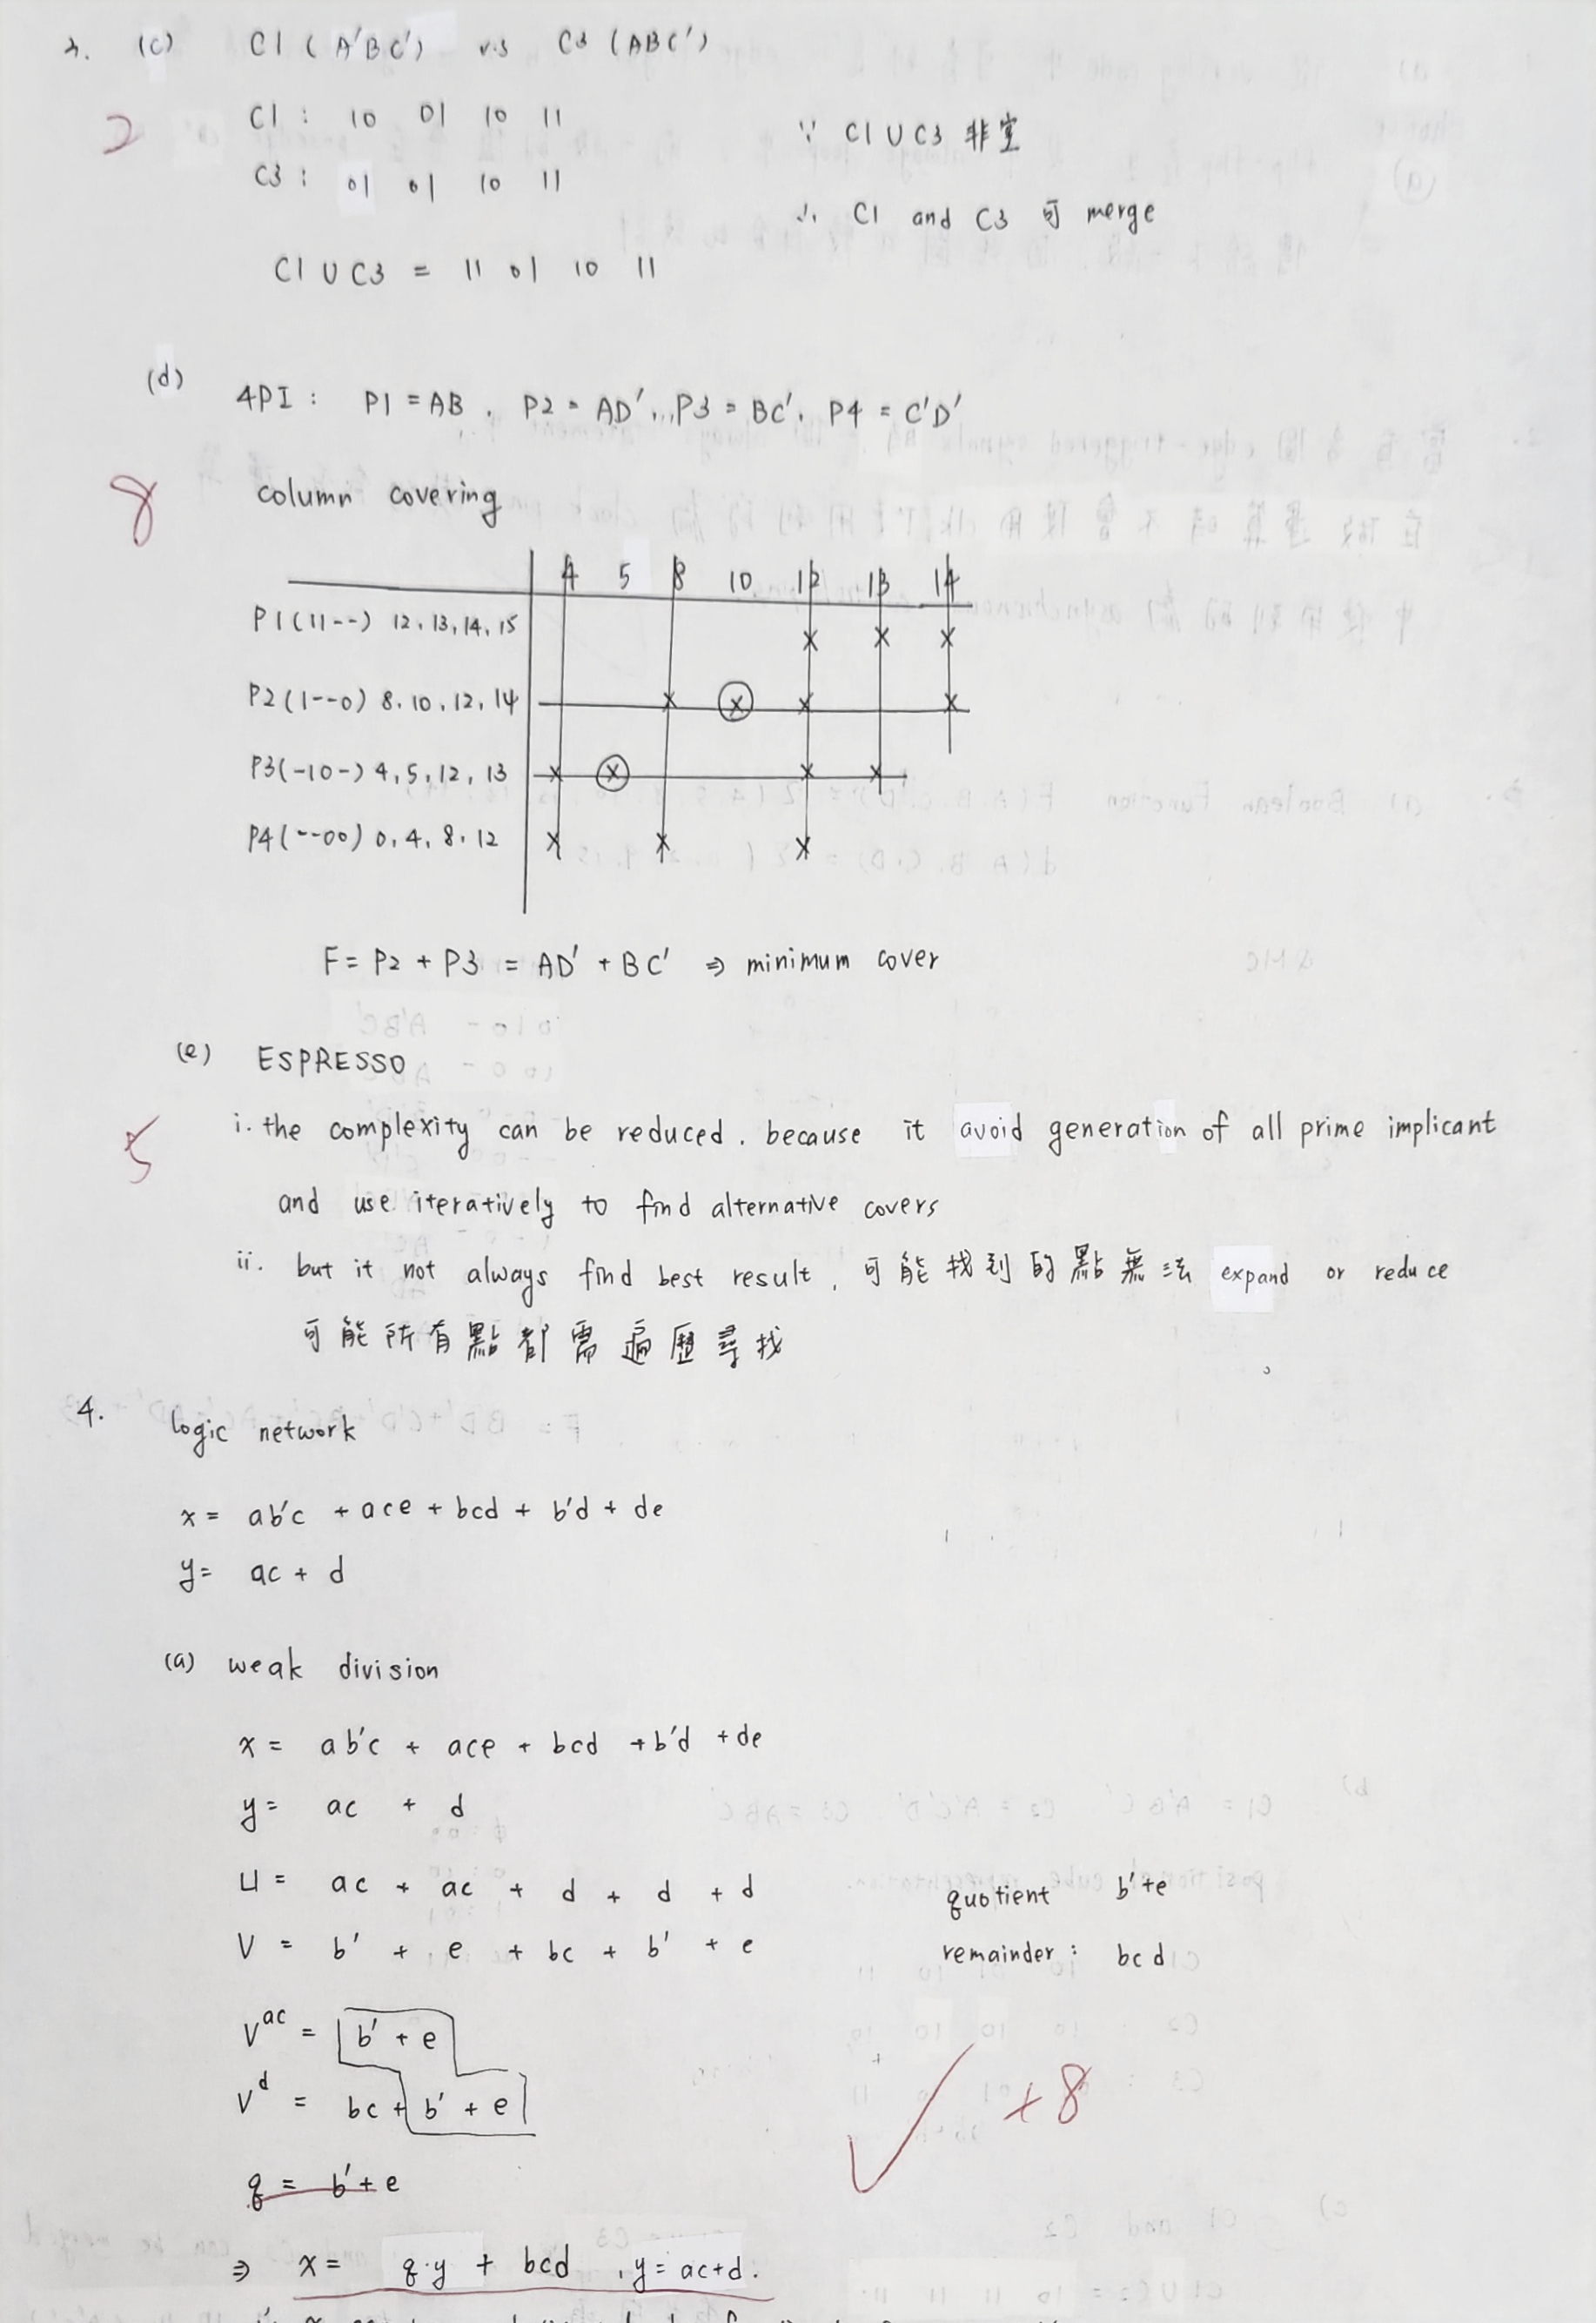 3. (c) C1 ( A'BC' ) v.s C3 (ABC')
2
C1 : 10 01 10 11
∵ C1 ∪ C3 非空
C3 : 01 01 10 11
∴ C1 and C3 可 merge
C1 ∪ C3 = 11 01 10 11
(d) 4PI : P1 = AB , P2 = AD' , P3 = BC' , P4 = C'D'
8
column covering
4 5 8 10 12 13 14
P1(11--) 12, 13, 14, 15 x x x
P2(1--0) 8, 10, 12, 14 x x x x
P3(-10-) 4, 5, 12, 13 x x x x
P4(--00) 0, 4, 8, 12 x x x
F = P2 + P3 = AD' + BC' ⇒ minimum cover
(e) ESPRESSO
5
i. the complexity can be reduced, because it avoid generation of all prime implicant
and use iteratively to find alternative covers
ii. but it not always find best result, 可能找到的點無法 expand or reduce
可能所有點都需遍歷尋找
4. logic network
x = ab'c + ace + bcd + b'd + de
y = ac + d
(a) weak division
x = ab'c + ace + bcd + b'd + de
y = ac + d
U = ac + ac + d + d + d
quotient b'+e
V = b' + e + bc + b' + e
remainder : bcd
V^ac = b' + e
V^d = bc + b' + e
+8
q = b' + e
⇒ x = q·y + bcd , y = ac+d.